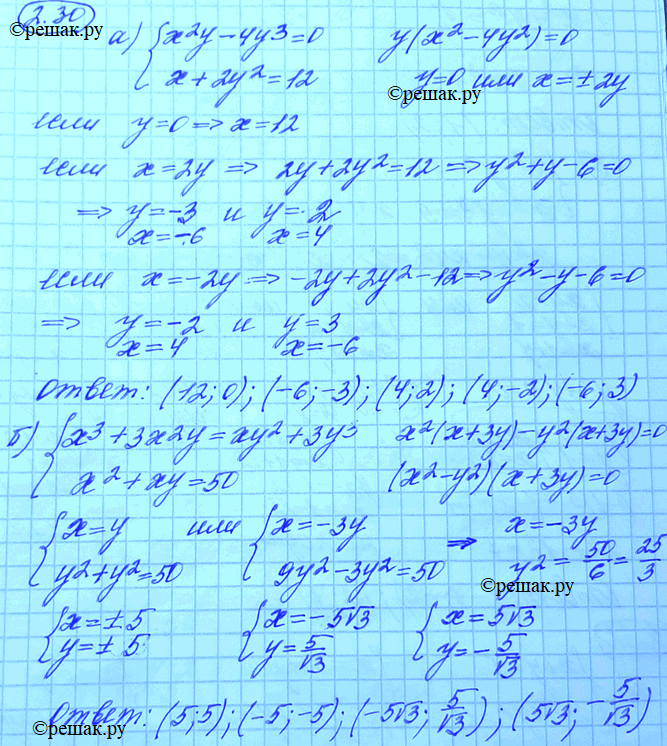 2.30
©решак.ру
а) { x²y - 4y³ = 0    y(x² - 4y²) = 0
x + 2y² = 12    y = 0 или x = ±2y
©решак.ру
если y = 0 => x = 12
если x = 2y => 2y + 2y² = 12 => y² + y - 6 = 0
=> y = -3 и y = 2
x = -6    x = 4
если x = -2y => -2y + 2y² - 12 => y² - y - 6 = 0
=> y = -2 и y = 3
x = 4    x = -6
ответ: (12; 0); (-6; -3); (4; 2); (4; -2); (-6; 3)
б) { x³ + 3x²y = xy² + 3y³    x²(x + 3y) - y²(x + 3y) = 0
x² + xy = 50    (x² - y²)(x + 3y) = 0
{ x = y или { x = -3y => x = -3y
y² + y² = 50    9y² - 3y² = 50    y² = 50/6 = 25/3
©решак.ру
{ x = ±5    { x = -5√3    { x = 5√3
y = ±5    y = 5/√3    y = -5/√3
ответ: (5; 5); (-5; -5); (-5√3; 5/√3); (5√3; -5/√3)
©решак.ру